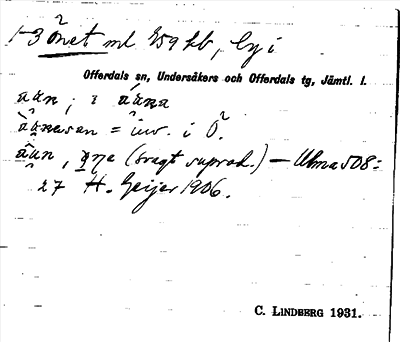 1-3 Önet ml 259 hb, by i
Offerdals sn, Undersåkers och Offerdals tg, Jämtl. l.
åån ; i åå̀na
åånasen = inv. i Ö.
åån, ŋna (svagt suprad.) — Ulma 508:
27 H. Geijer 1906.
C. LINDBERG 1931.